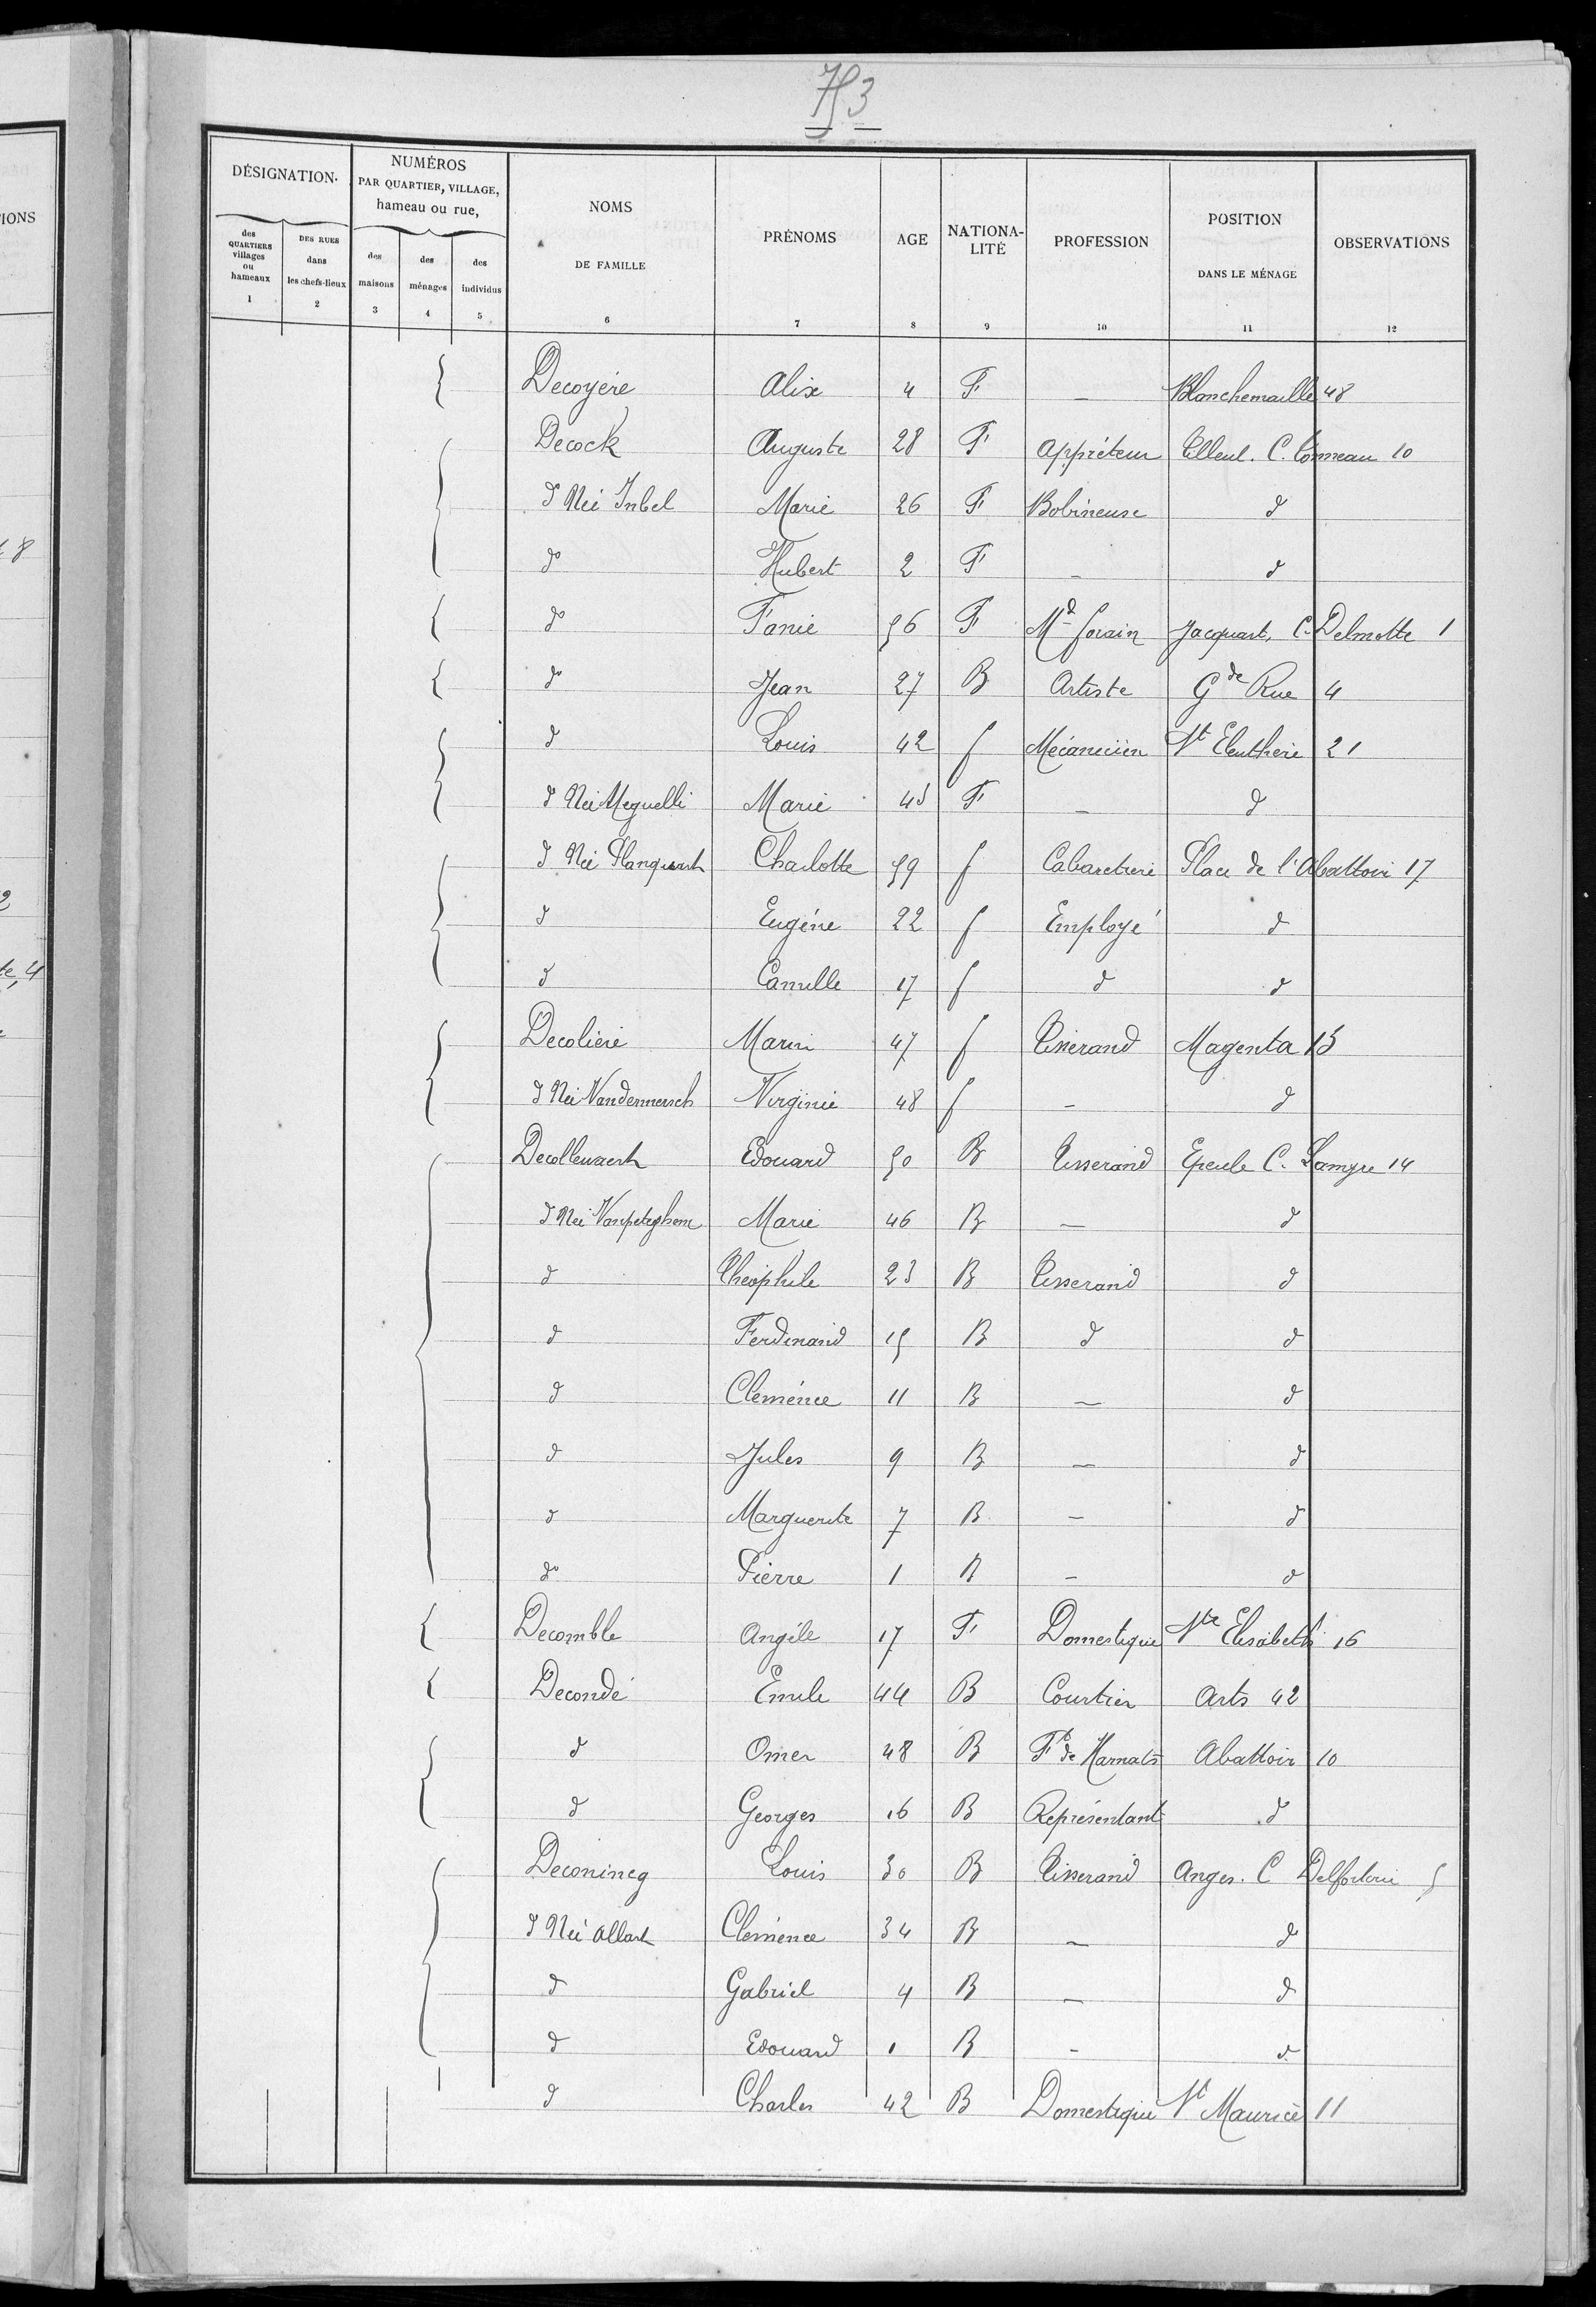 753
DÉSIGNATION.
NUMÉROS
PAR QUARTIER, VILLAGE,
hameau ou rue,
NOMS
DE FAMILLE
PRÉNOMS
AGE
NATIONA-
LITÉ
PROFESSION
POSITION
DANS LE MÉNAGE
OBSERVATIONS
des
QUARTIERS
villages
ou
hameaux
DES RUES
dans
les chefs-lieux
des
maisons
des
ménages
des
individus
1 2 3 4 5 6 7 8 9 10 11 12
Decoyère Alix 4 F — Blanchemaille 48
Decock Auguste 28 F Appréteur Tilleul. C. Tonneau 10
d Née Inbel Marie 26 F Bobineuse d
do Hubert 2 F — d
do Fanie 56 F Md forain Jacquart, C. Delmotte 1
do Jean 27 B Artiste Gde Rue 4
d Louis 42 f Mécanicien St Eleuthère 21
d Née Meguelli Marie 43 F — d
d Née Planquart Charlotte 59 f Cabaretière Place de l'Abattoir 17
d Eugène 22 f Employé d
d Camille 17 f d d
Decolière Marin 47 f Tisserand Magenta 13
d Née Vandermersch Virginie 48 f — d
Decollewaert Edouard 50 B Tisserand Epeule C. Lamyre 14
d Née Vanpeteghem Marie 46 B — d
d Théophile 23 B Tisserand d
d Ferdinand 15 B d d
d Cleménce 11 B — d
d Jules 9 B — d
d Marguerite 7 B — d
do Pierre 1 B — d
Decomble Angèle 17 F Domestique Ste Elisabeth 16
Decondé Emile 44 B Courtier Arts 42
d Omer 48 B Ft de Harnats Abattoir 10
d Georges 16 B Représentant d
Deconincq Louis 30 B Tisserand Anges. C Delfortrie 5
d Née Allart Clémence 34 B — d
d Gabriel 4 B — d
d Edouard 1 B — d
d Charles 42 B Domestique St Maurice 11